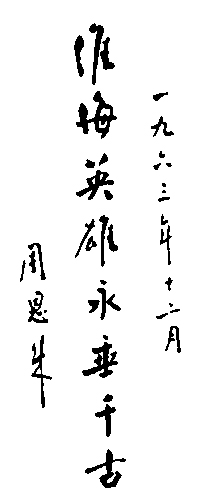 一九六三年十二月
淮海英雄永垂千古
周恩来